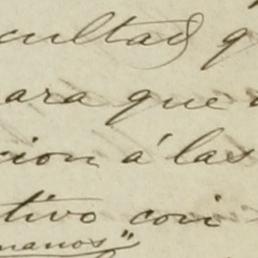 cultad q
ara que
cion á las
tivo con
manos"